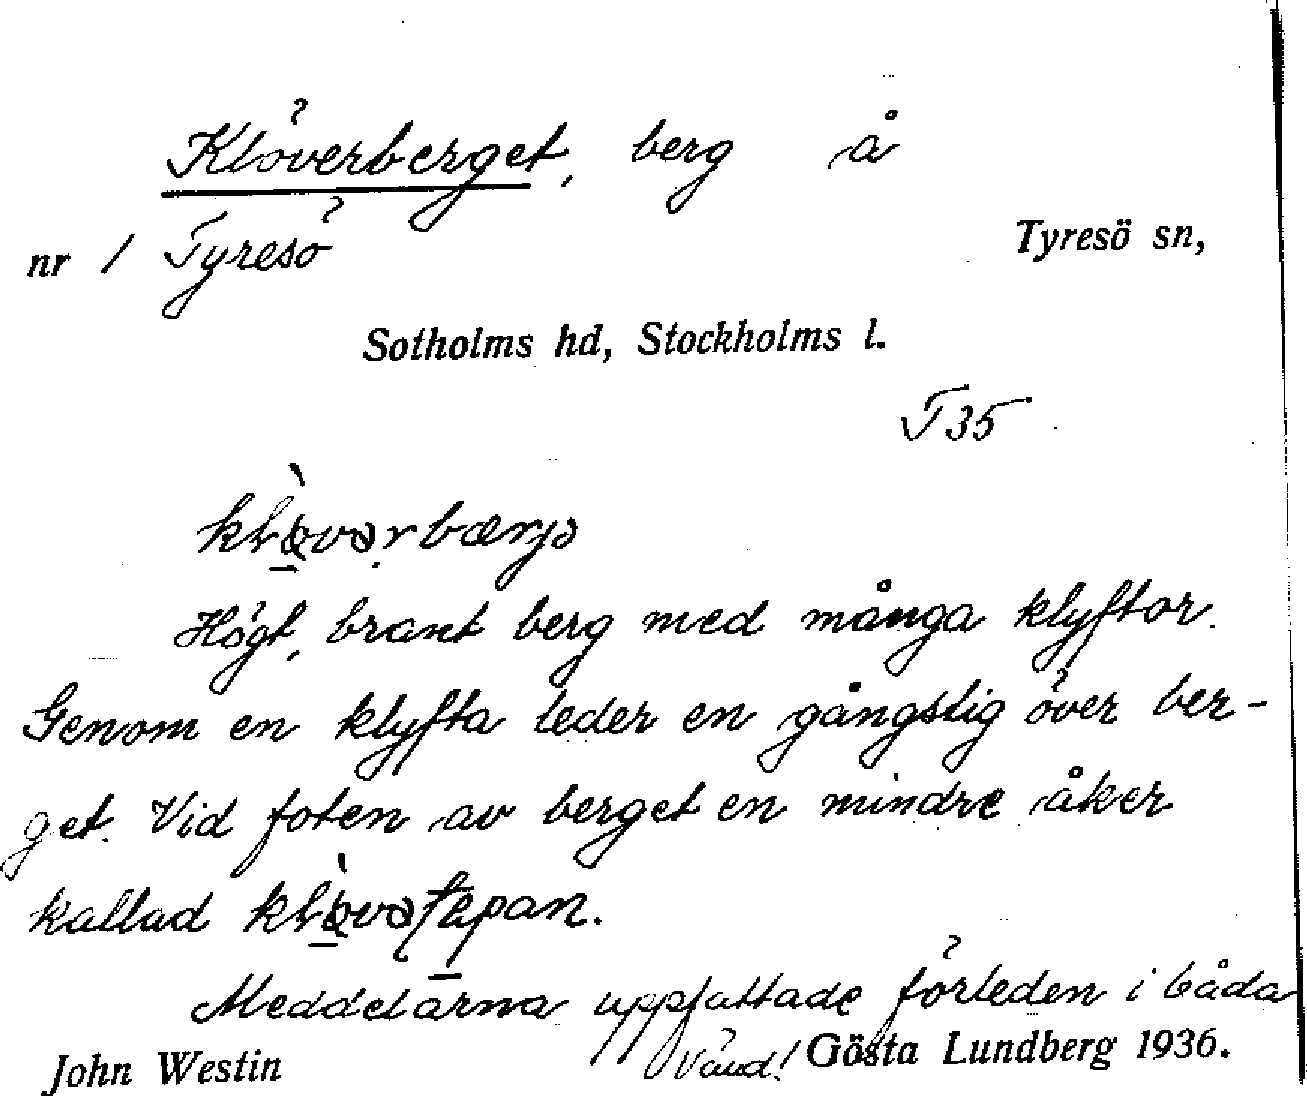 Klöverberget, berg å
nr 1 Tyresö Tyresö sn,
Sotholms hd, Stockholms l.
T35
Högt, brant berg med många klyftor.
Genom en klyfta leder en gångstig över ber-
get. Vid foten av berget en mindre åker
kallad
Meddelarna uppfattade förleden i båda
John Westin Vänd! Gösta Lundberg 1936.